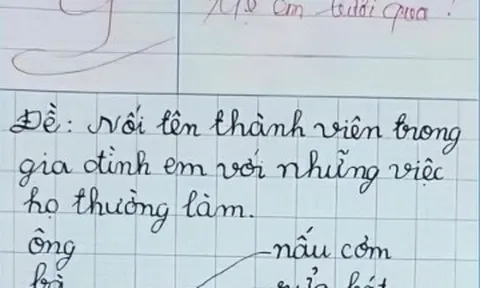 em tưới qua!
Đề: Nối tên thành viên trong
gia đình em với những việc
họ thường làm.
ông
nấu cơm
bà
rửa bát